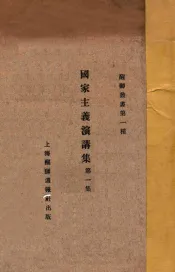 醒獅叢書第一種
國家主義演講集 第一集
上海醒獅週報社出版